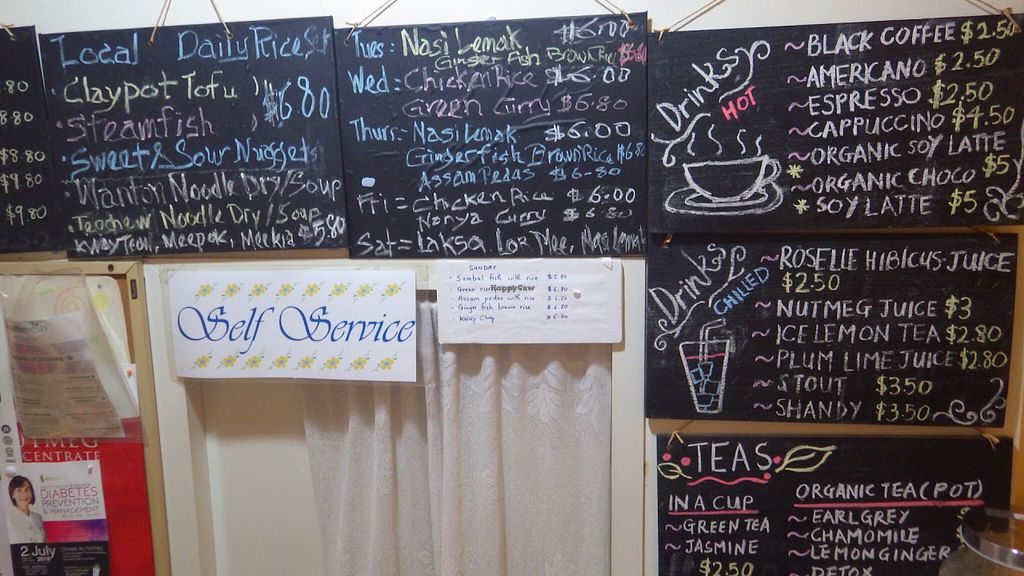 .80
8.80
$8.80
$9.80
$9.80
Local Daily Rice Set
Claypot Tofu
Steamfish
$6.80
Sweet & Sour Nuggets
Wanton Noodle Dry/Soup
Teochew Noodle Dry/Soup
Kway Teow, Meepok, Meekia $5.80
Tues: Nasi Lemak $6.00
Ginger Fish Brown Rice $6.80
Wed: Chicken Rice $6.00
Green Curry $6.80
Thurs: Nasi Lemak $6.00
Gingerfish Brown Rice $6.80
Assam Pedas $6.80
Fri = Chicken Rice $6.00
Nonya Curry $6.80
Sat = Laksa, Lor Mee, Nasi Lemak
Self Service
SUNDAY
Sambal fish with rice $5.80
Green cur
Assam pedas with rice $6.80
Ginger fish brown rice $6.80
Kway Chap $6.80
HappyCow
Drinks
HOT
~BLACK COFFEE $2.50
~AMERICANO $2.50
~ESPRESSO $2.50
~CAPPUCCINO $4.50
~ORGANIC SOY LATTE $5
* ~ORGANIC CHOCO
* SOY LATTE $5
Drinks
CHILLED
~ROSELLE HIBICUS JUICE
$2.50
~NUTMEG JUICE $3
~ICE LEMON TEA $2.80
~PLUM LIME JUICE $2.80
~STOUT $3.50
~SHANDY $3.50
TEAS
IN A CUP
~GREEN TEA
~JASMINE
$2.50
ORGANIC TEA (POT)
~EARL GREY
~CHAMOMILE
~LEMONGINGER
~DETOX
CENTRATE
DIABETES
PREVENTION
& MANAGEMENT
2 July